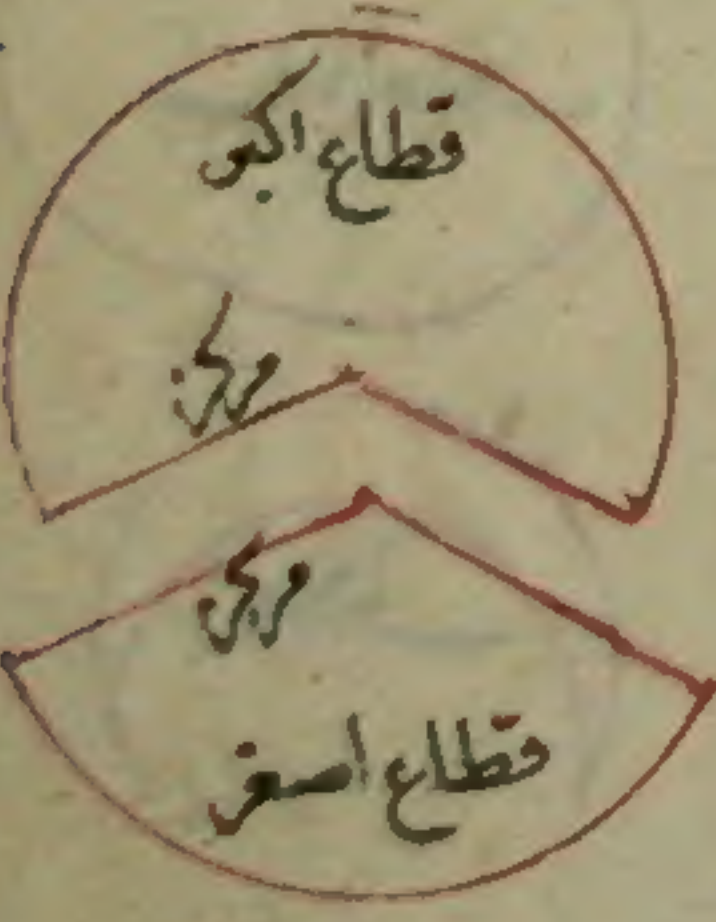 قطاع اكبر
مركز
مركز
قطاع اصغر